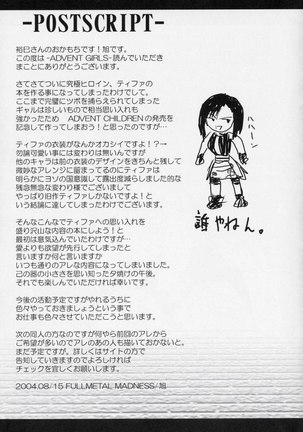 -POSTSCRIPT-
裕巳さんのおかもちです！旭です。
この度は -ADVENT GIRLS- 読んでいただき
まことにありがとうございます。
さてさてついに究極ヒロイン、ティファの
本を作る事になってしまったわけでして。
ここまで完璧にツボ捕えられてしまった
ギャルは珍しいもので相当思い入れも
強かったため　ADVENT CHILDRENの発売を
記念して作ってしまおう！と思ったのですが…
ティファの衣装がなんかオカシイですよ！？→
勿論可愛い事には変わりは無いんですが
他のキャラは前の衣装のデザインをきちんと残して
微妙なアレンジに留まってるのにティファは
明らかにヨソの国意識して露出度減らしました的な
残念無念な変わり様でございまして
やっぱり旧作ティファしかないですよ！と
いう結論に達してしまったわけでございます。
そんなこんなでティファへの思い入れを
盛り沢山な内容の本にしよう！と
最初は意気込んでいたわけですが…
愛よりも欲望が先行してしまったと
言いますか何と言いますか
いつも通りのアレな内容になってしまいました。
己の器の小ささを思い知った夕焼けの午後。
それでも楽しんでいただければ幸いです。
今後の活動予定ですがやれるうちに
色々やっておきましょうという事で
お仕事も色々させていただこうと思います。
次の同人の方なのですが何やら前回のアレから
ご希望が多いのでアレのあの人も描いておかないと。
まだ予定ですが。詳しくはサイトの方で
告知していきますのでよろしければ
チェックを宜しくお願い致します！
2004.08/15 FULLMETAL MADNESS/旭
ハハーン
誰やねん。